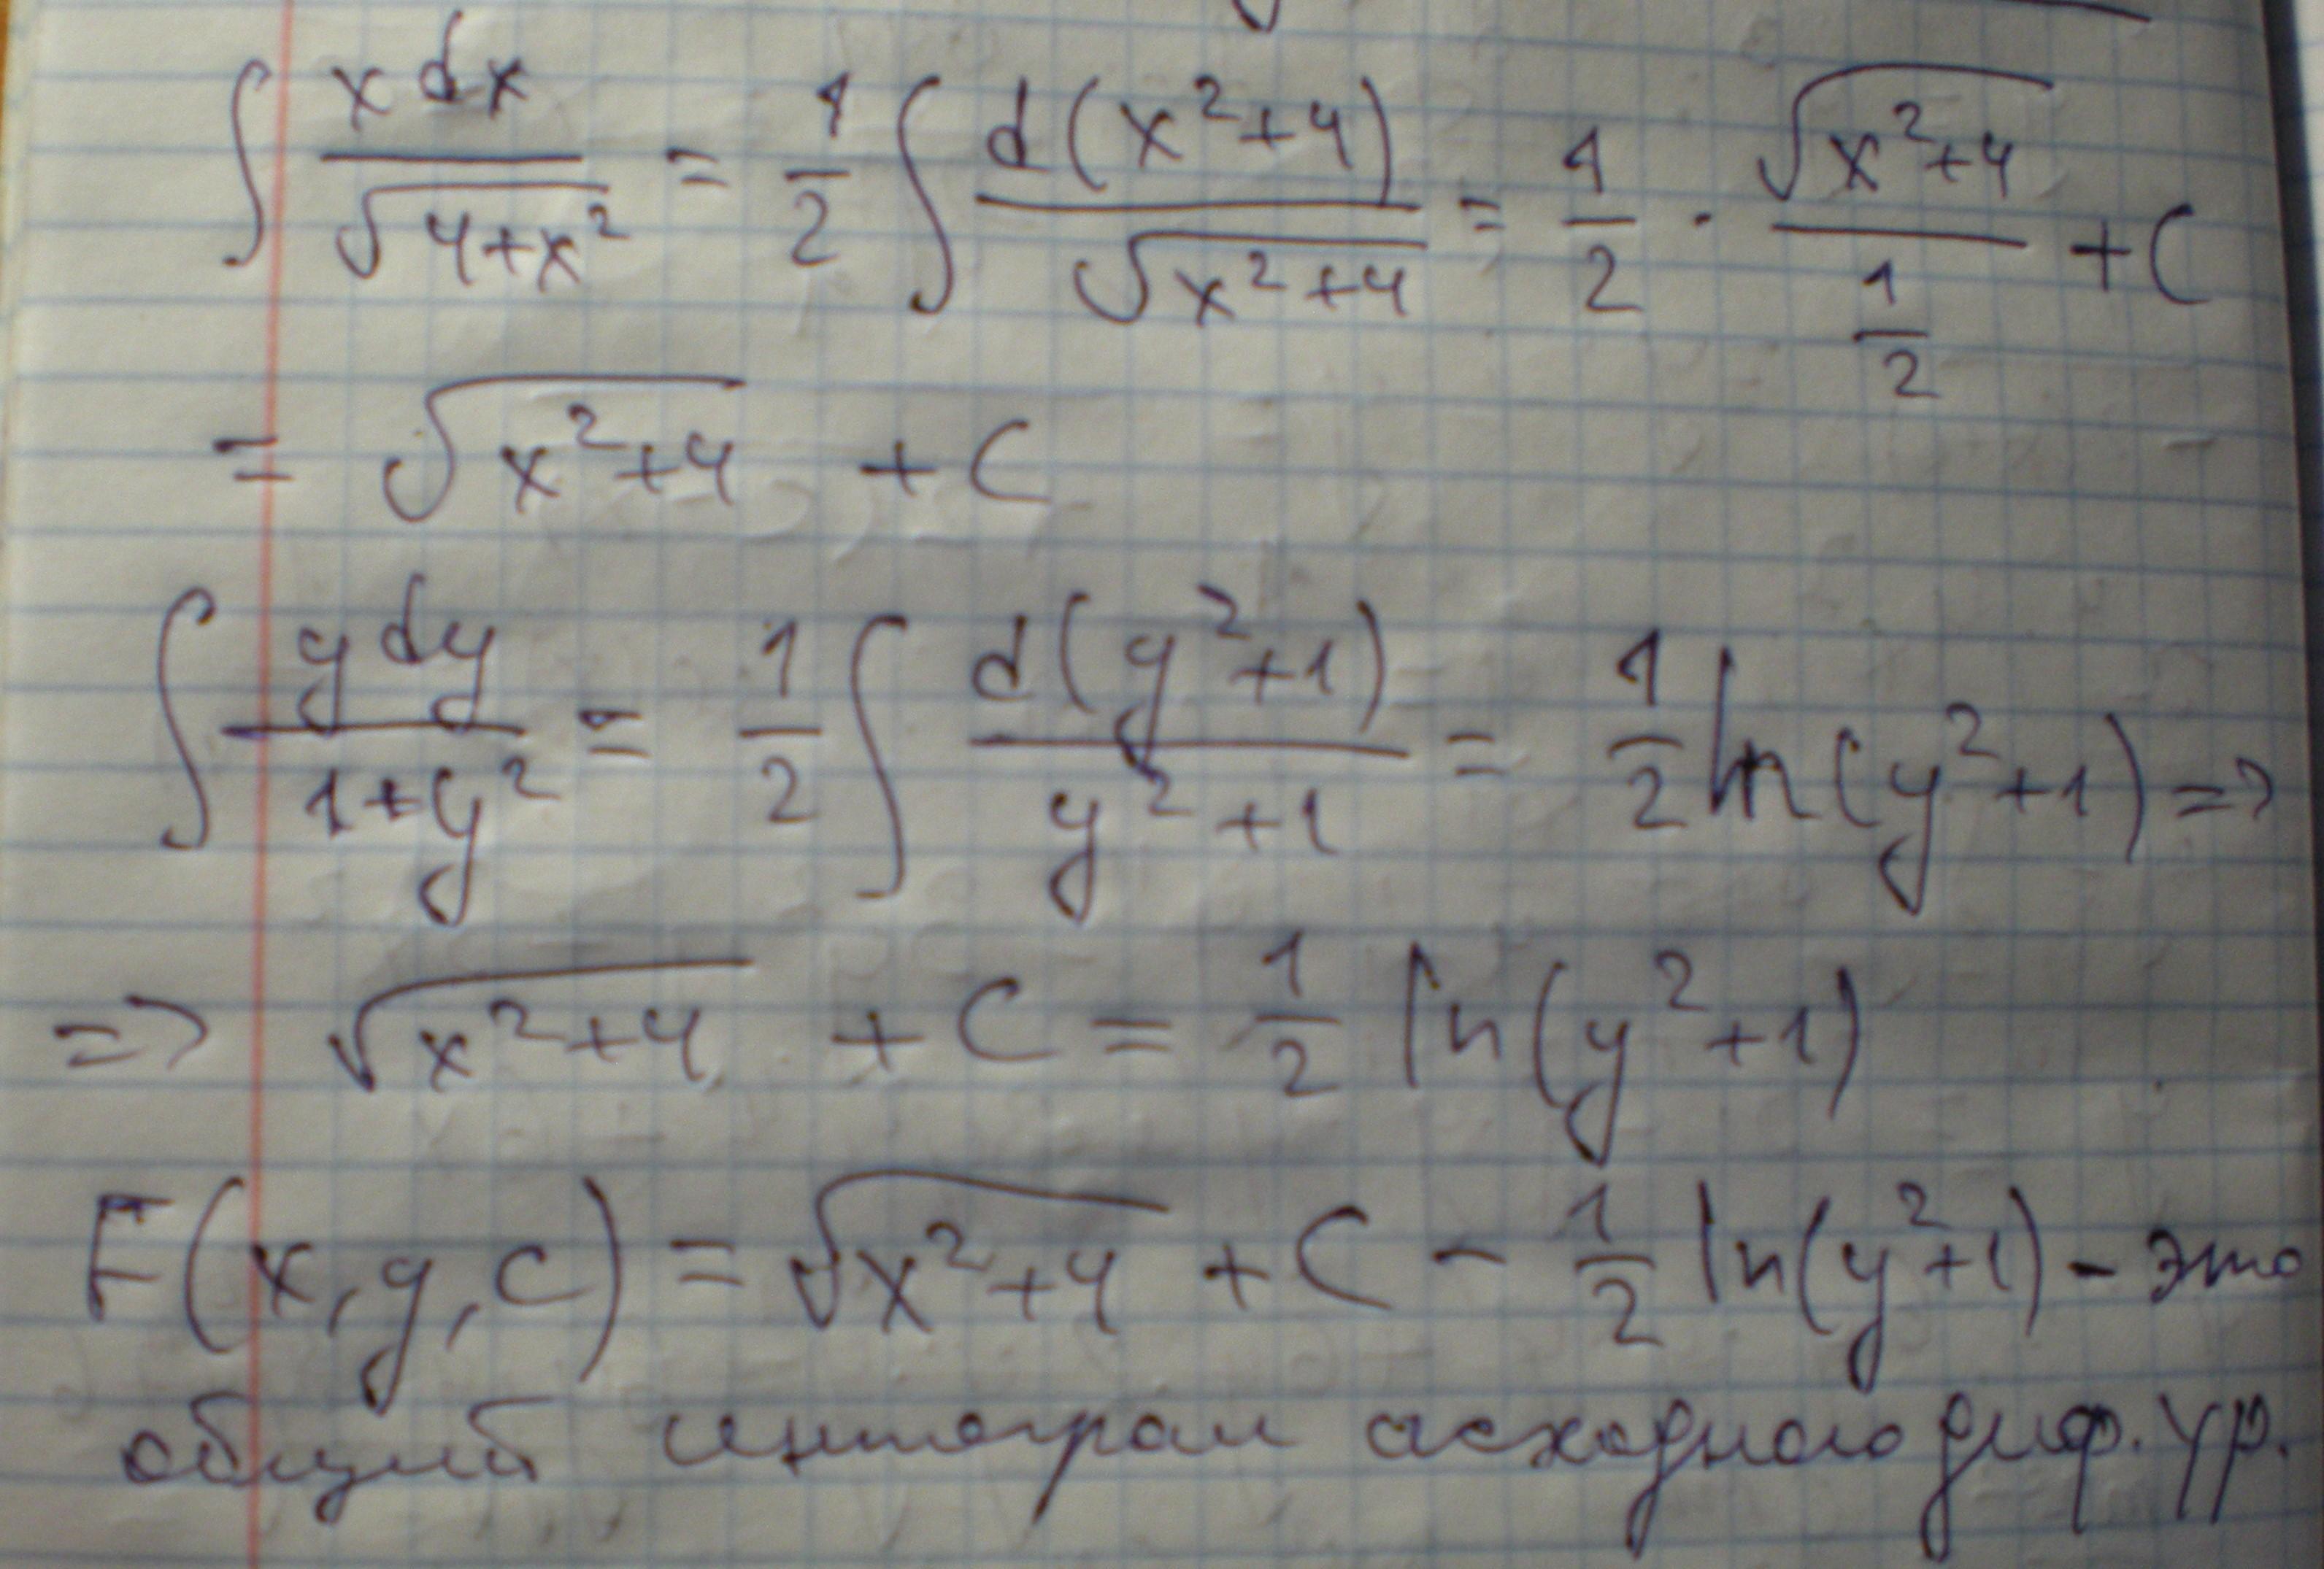 ∫ x dx / √(4+x²) = 1/2 ∫ d(x²+4) / √(x²+4) = 1/2 · √(x²+4) / (1/2) + C
= √(x²+4) + C
∫ y dy / (1+y²) = 1/2 ∫ d(y²+1) / (y²+1) = 1/2 ln(y²+1) =>
=> √(x²+4) + C = 1/2 ln(y²+1)
F(x,y,c) = √(x²+4) + C - 1/2 ln(y²+1) - это
общий интеграл исходного диф. ур.